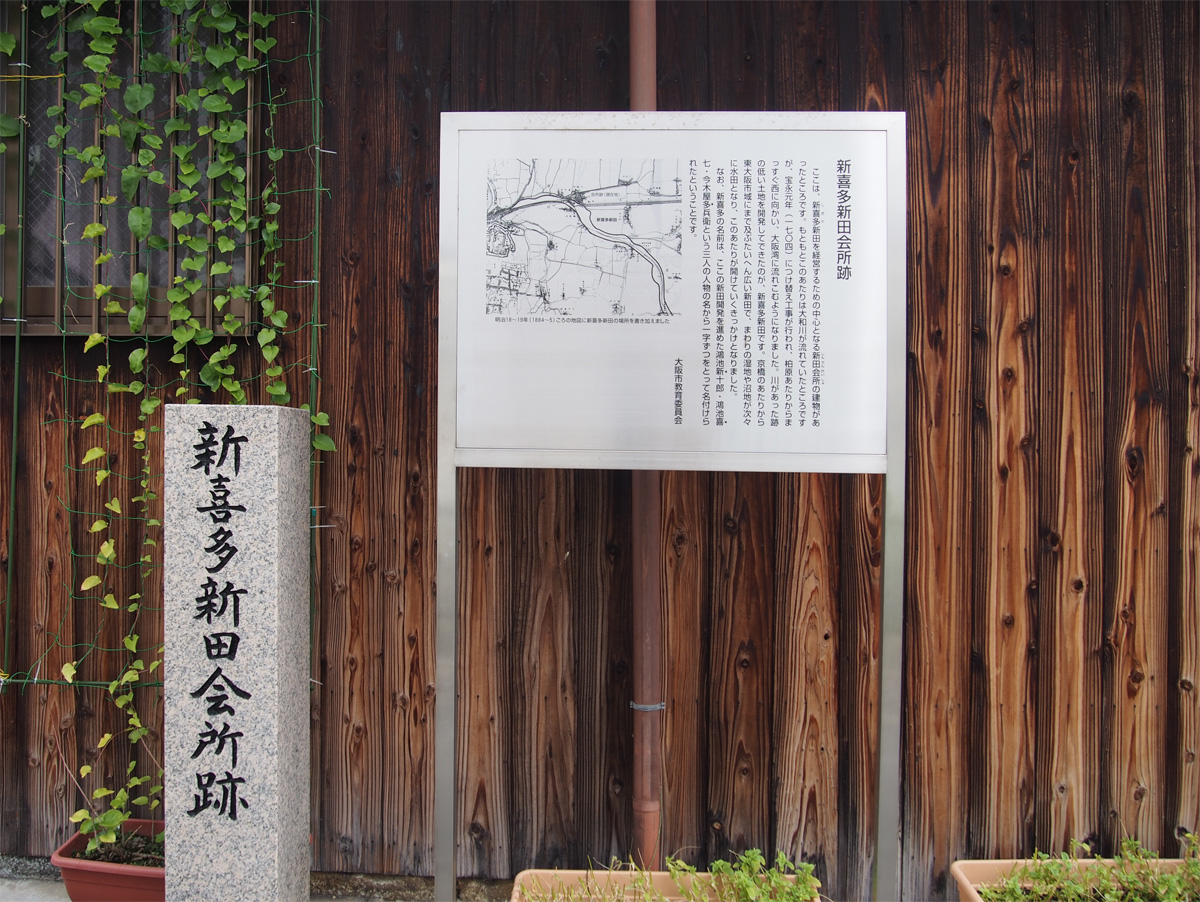 新喜多新田会所跡
新喜多新田会所跡
ここは、新喜多新田を経営するための中心となる新田会所の建物があ
ったところです。もともとこのあたりは大和川が流れていたところです
が、宝永元年(一七〇四)につけ替え工事が行われ、柏原あたりからま
っすぐ西に向かい、大阪湾に流れこむようになりました。川があった跡
の低い土地を開発してできたのが、新喜多新田です。京橋のあたりから
東大阪市域にまで及ぶたいへん広い新田で、まわりの湿地や沼地が次々
に水田となり、このあたりが開けていくきっかけとなりました。
なお、新喜多の名前は、ここの新田開発を進めた鴻池新十郎・鴻池喜
七・今木屋多兵衛という三人の人物の名から一字ずつをとって名付けら
れたということです。
大阪市教育委員会
新喜多新田
明治18〜19年(1884〜5)ころの地図に新喜多新田の場所を書き加えました